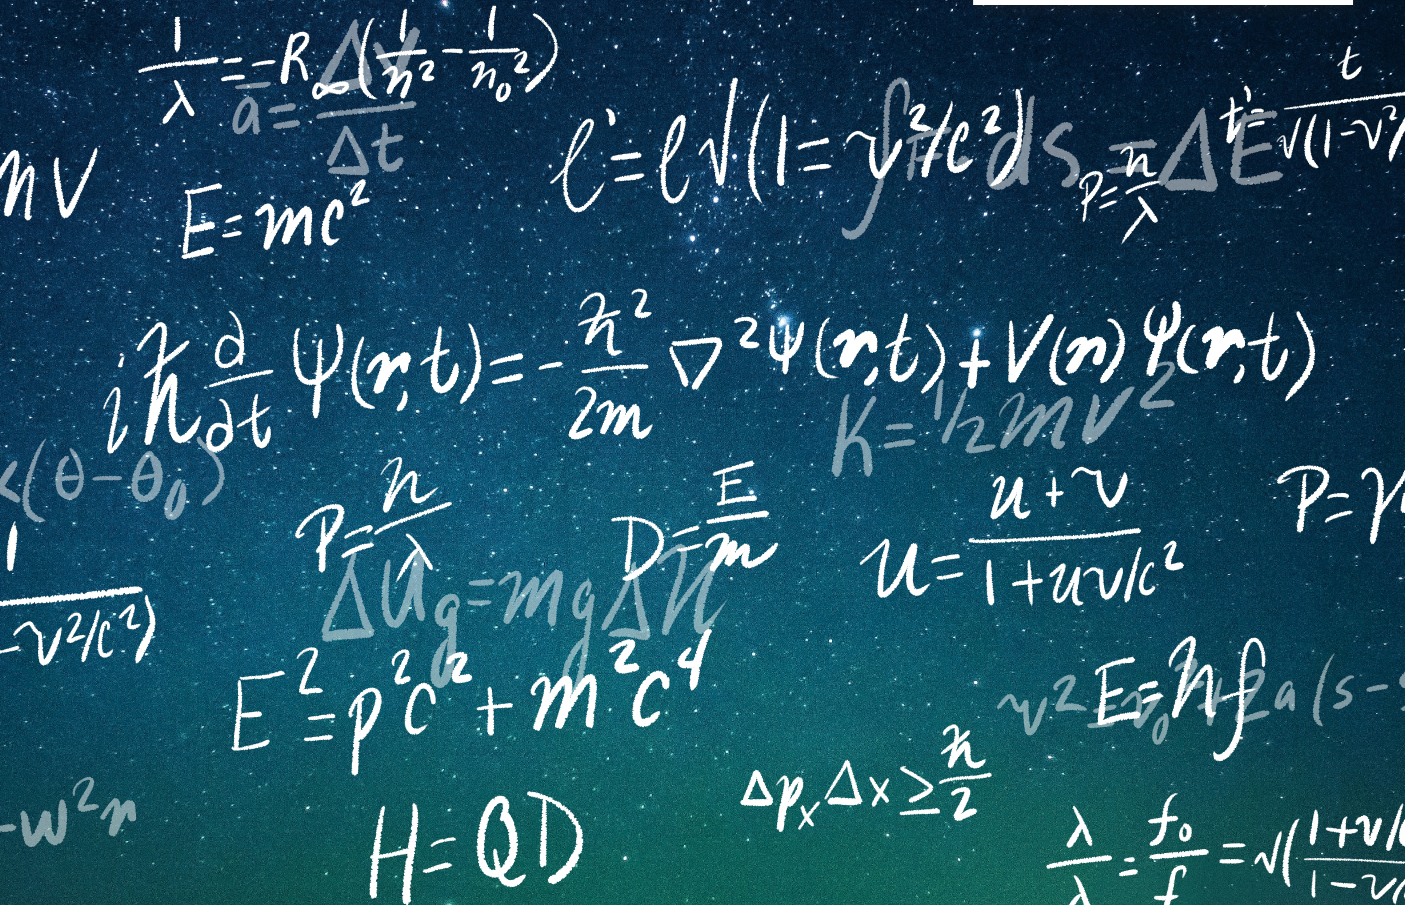 1/λ = -R∞(1/n² - 1/n₀²)
a = Δv/Δt
mv
E = mc²
ℓ' = ℓ√(1 = v²/c²)
∫F · ds = ΔE
P = h/λ
t' = t/√(1-v²/
iħ ∂/∂t Ψ(r,t) = - ħ²/2m ∇²Ψ(r,t) + V(r)Ψ(r,t)
K = ½mv²
(θ-θ₀)
P = h/λ
D = E/m
u = u+v/1+uv/c²
P = γ
1
-v²/c²)
ΔUg = mgΔh
E² = p²c² + m²c⁴
E = hf
v² = v₀² + 2a(s-
-w²r
Δpₓ Δx ≥ ħ/2
H = QD
λ/λ = f₀/f = √(1+v/c
1-v/